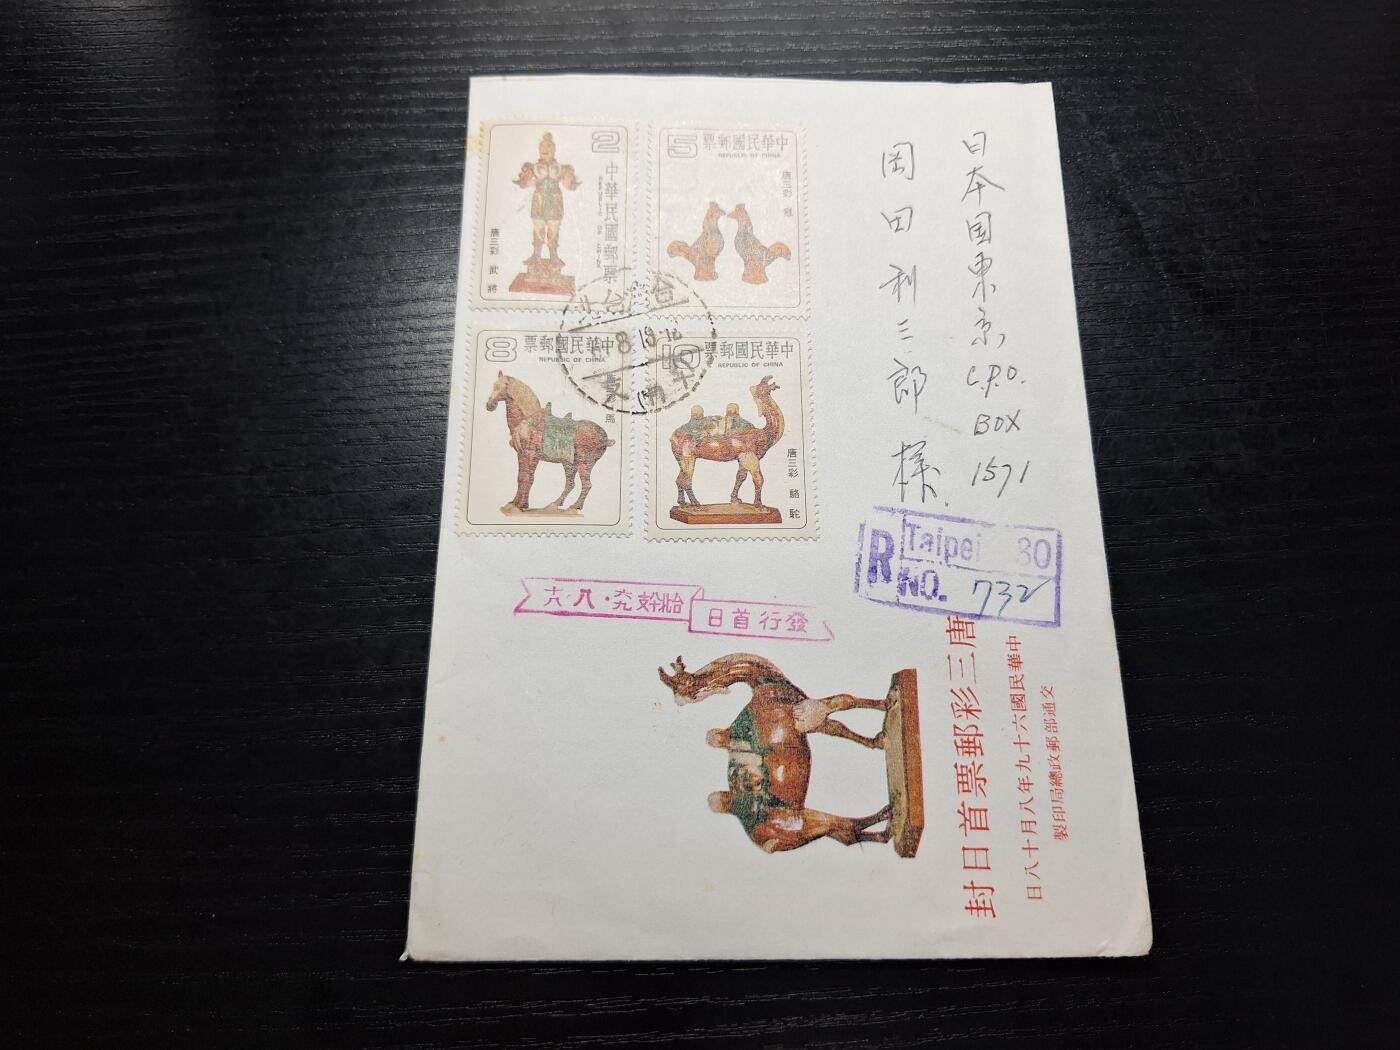 2
中華民國郵票
REPUBLIC OF CHINA
唐三彩 武將
5
票郵國民華中
REPUBLIC OF CHINA
唐三彩
8
票郵國民華中
REPUBLIC OF CHINA
馬
10
票郵國民華中
REPUBLIC OF CHINA
唐三彩 駱駝
日本国東京
C.P.O.
BOX
1571
岡田利三郎様
R
Taipei 30
NO. 732
日首行發
唐三彩郵票首日封
中華民國六十九年八月十八日
交通部郵政總局印製